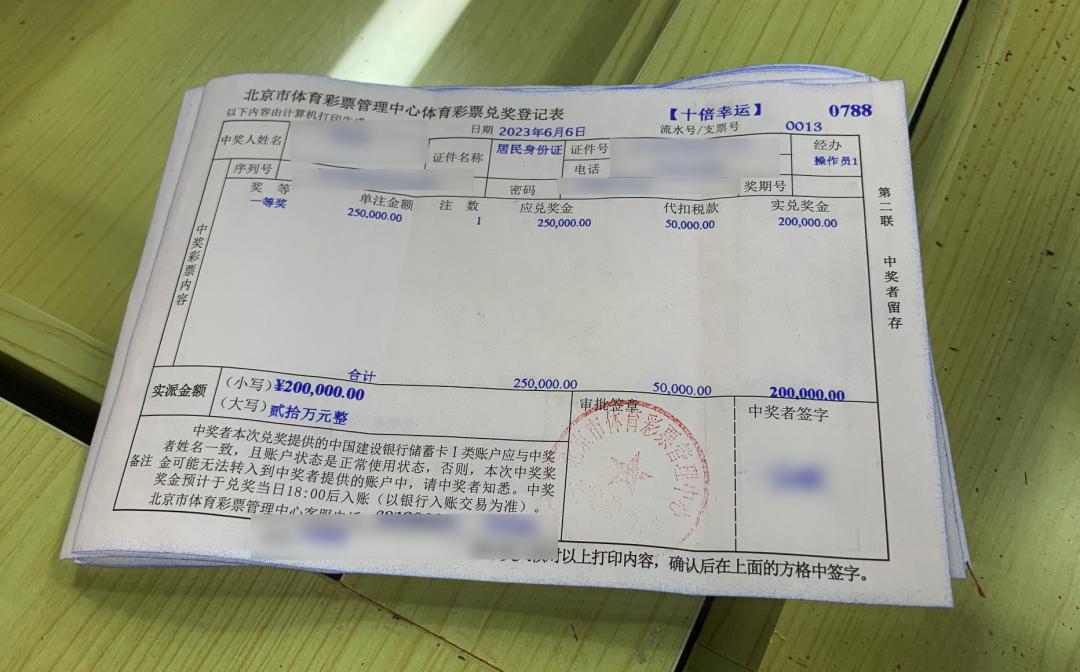 北京市体育彩票管理中心体育彩票兑奖登记表
【十倍幸运】
0788
以下内容由计算机打印生成
日期 2023年6月6日
流水号/支票号 0013
中奖人姓名
证件名称 居民身份证
证件号
电话
经办
操作员1
序列号
密码
奖期号
奖 等 单注金额 注 数 应兑奖金 代扣税款 实兑奖金
一等奖 250,000.00 1 250,000.00 50,000.00 200,000.00
中奖彩票内容
合计 250,000.00 50,000.00 200,000.00
实派金额
(小写) ¥200,000.00
(大写) 贰拾万元整
审批签章
北京市体育彩票管理中心
中奖者签字
备注
中奖者本次兑奖提供的中国建设银行储蓄卡Ⅰ类账户应与中奖
者姓名一致，且账户状态是正常使用状态，否则，本次中奖奖
金可能无法转入到中奖者提供的账户中，请中奖者知悉。中奖
奖金预计于兑奖当日18:00后入账（以银行入账交易为准）。
北京市体育彩票管理中心客服电话
对以上打印内容，确认后在上面的方格中签字。
第二联 中奖者留存